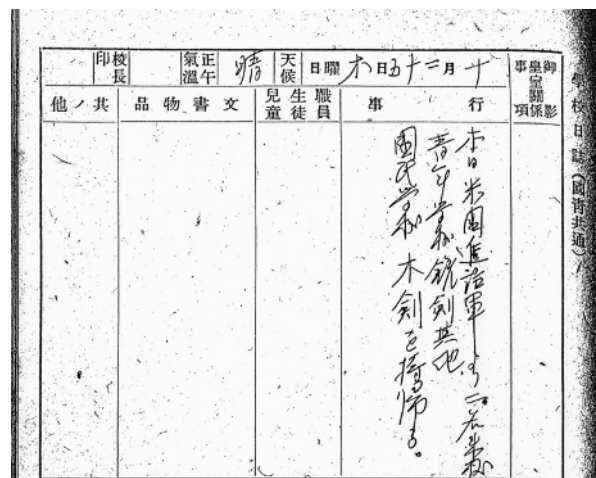 學校日誌（國青共通）
御影皇室關係事項
十月二十五日木曜日
天候
晴
正午氣溫
校長印
行事
職員生徒兒童
文書物品
其ノ他
本日米國進駐軍より二名来校
青年学校銃剣其他
國民学校木剣を携帰る。